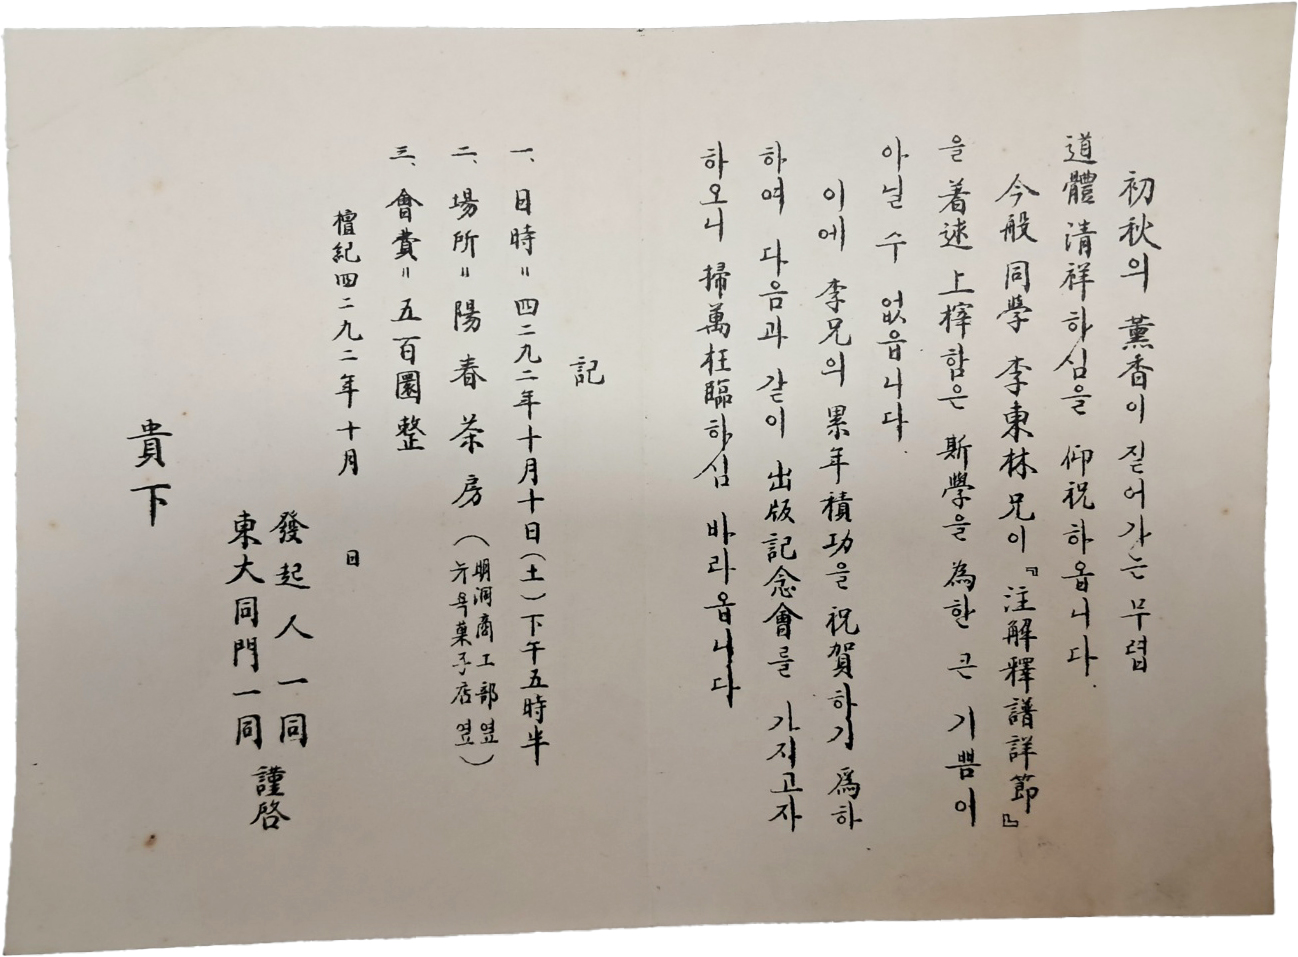 初秋의 薰香이 짙어가는 무렵
道體 清祥하심을 仰祝하옵니다.
今般 同學 李東林兄이 『注解釋譜詳節』
을 着述 上梓함은 斯學을 為한 큰 기쁨이
아닐 수 없읍니다.
이에 李兄의 累年積功을 祝賀하기 爲하
하여 다음과 같이 出版記念會를 가지고자
하오니 掃萬枉臨하심 바라옵니다
記
一、日時＝四二九二年十月十日(土) 下午五時半
二、場所＝陽春茶房 (明洞商工部옆
뉴욕菓子店옆)
三、會費＝五百圜整
檀紀四二九二年十月 日
發起人一同
東大同門一同
謹啓
貴下